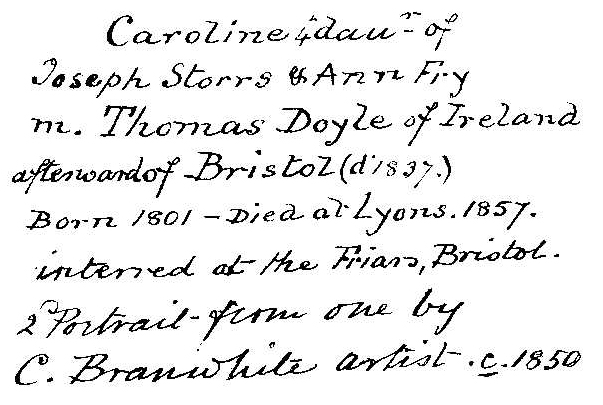 Caroline 4 daur of
Joseph Storrs & Ann Fry
m. Thomas Doyle of Ireland
afterward of Bristol (d 1837.)
Born 1801 - Died at Lyons. 1857.
interred at the Friars, Bristol.
2d Portrait - from one by
C. Branwhite artist. c. 1850